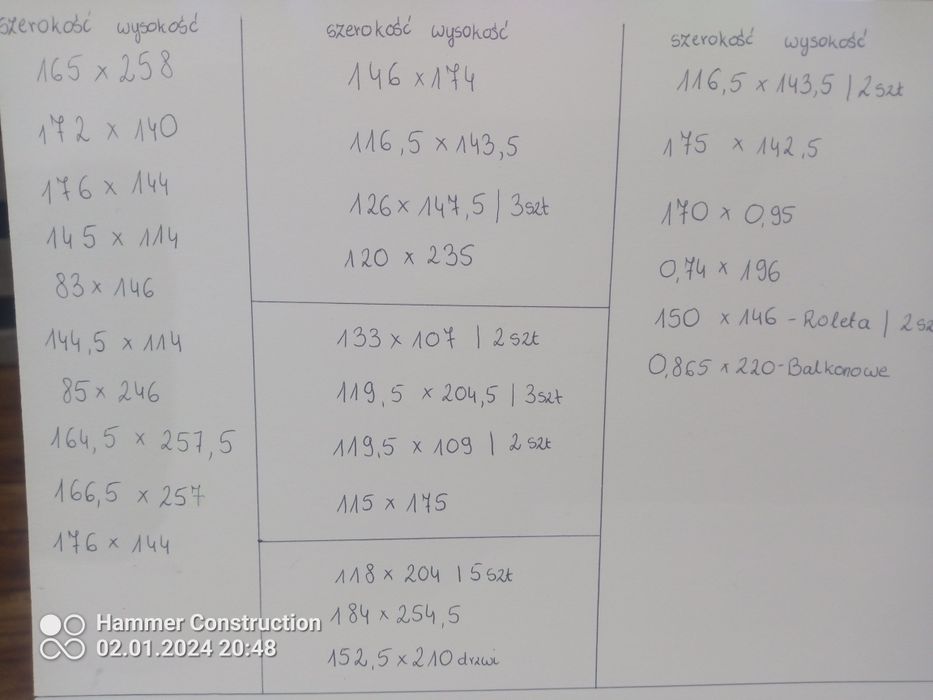 szerokość wysokość
165 x 258
172 x 140
176 x 144
145 x 114
83 x 146
144,5 x 114
85 x 246
164,5 x 257,5
166,5 x 257
176 x 144
szerokość wysokość
146 x 174
116,5 x 143,5
126 x 147,5 | 3szt
120 x 235
133 x 107 | 2szt
119,5 x 204,5 | 3szt
119,5 x 109 | 2szt
115 x 175
118 x 204 | 5szt
184 x 254,5
152,5 x 210 drzwi
szerokość wysokość
116,5 x 143,5 | 2szt
175 x 142,5
170 x 0,95
0,74 x 196
150 x 146 - Roleta | 2sz
0,865 x 220 - Balkonowe
Hammer Construction
02.01.2024 20:48